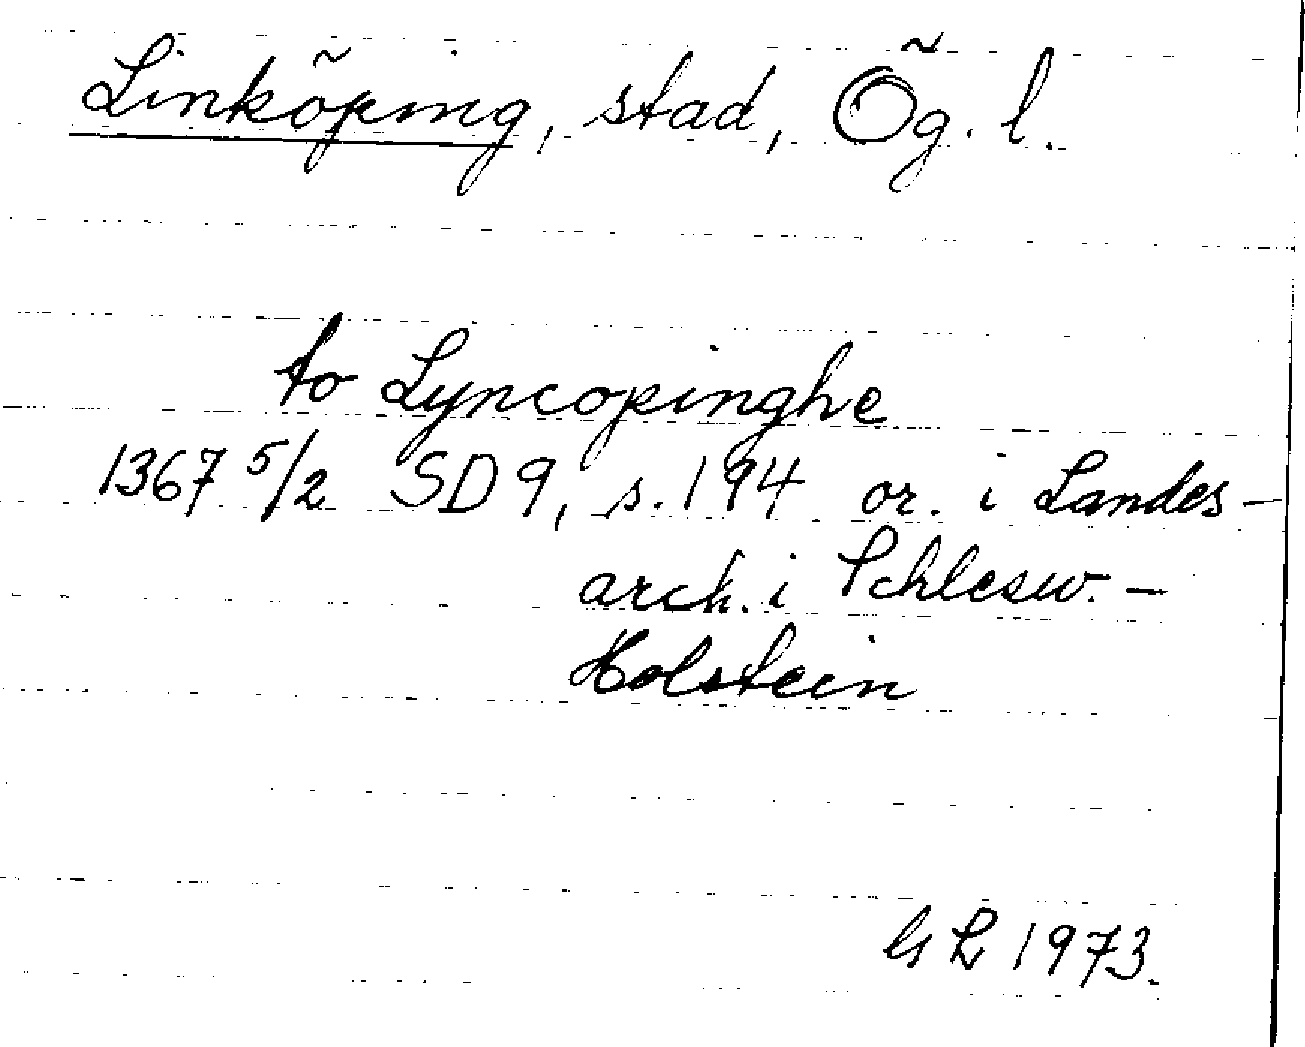 Linköping, stad, Ög. l.
to Lyncopinghe
1367 5/2 SD 9, s. 194 or. i Landes-
arch. i Schlesw.-
Holstein
GL 1973.